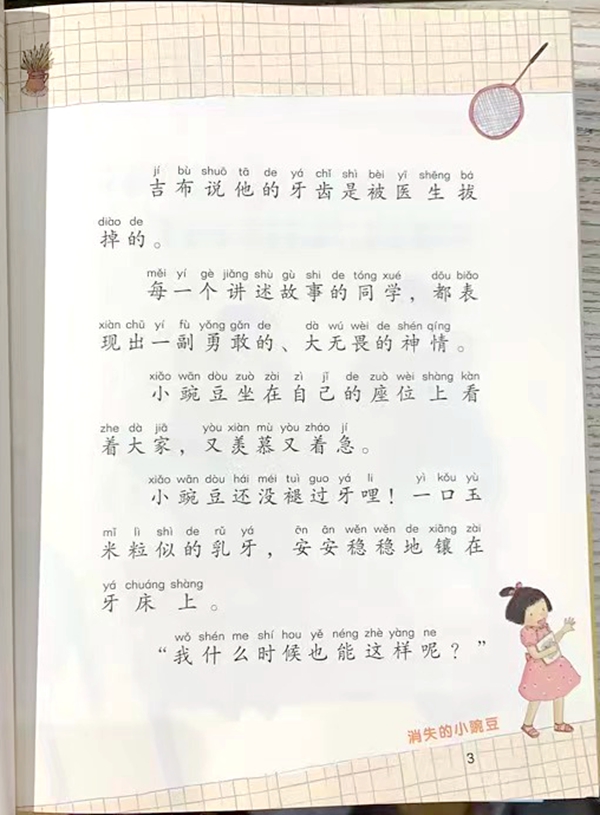 jí bù shuō tā de yá chǐ shì bèi yī shēng bá
吉布说他的牙齿是被医生拔
diào de
掉的。
měi yí gè jiǎng shù gù shi de tóng xué dōu biǎo
每一个讲述故事的同学，都表
xiàn chū yí fù yǒng gǎn de dà wú wèi de shén qíng
现出一副勇敢的、大无畏的神情。
xiǎo wān dòu zuò zài zì jǐ de zuò wèi shàng kàn
小豌豆坐在自己的座位上看
zhe dà jiā yòu xiàn mù yòu zháo jí
着大家，又羡慕又着急。
xiǎo wān dòu hái méi tuì guo yá li yì kǒu yù
小豌豆还没褪过牙哩！一口玉
mǐ lì shì de rǔ yá ān ān wěn wěn de xiāng zài
米粒似的乳牙，安安稳稳地镶在
yá chuáng shàng
牙床上。
wǒ shén me shí hou yě néng zhè yàng ne
“我什么时候也能这样呢？”
消失的小豌豆
3